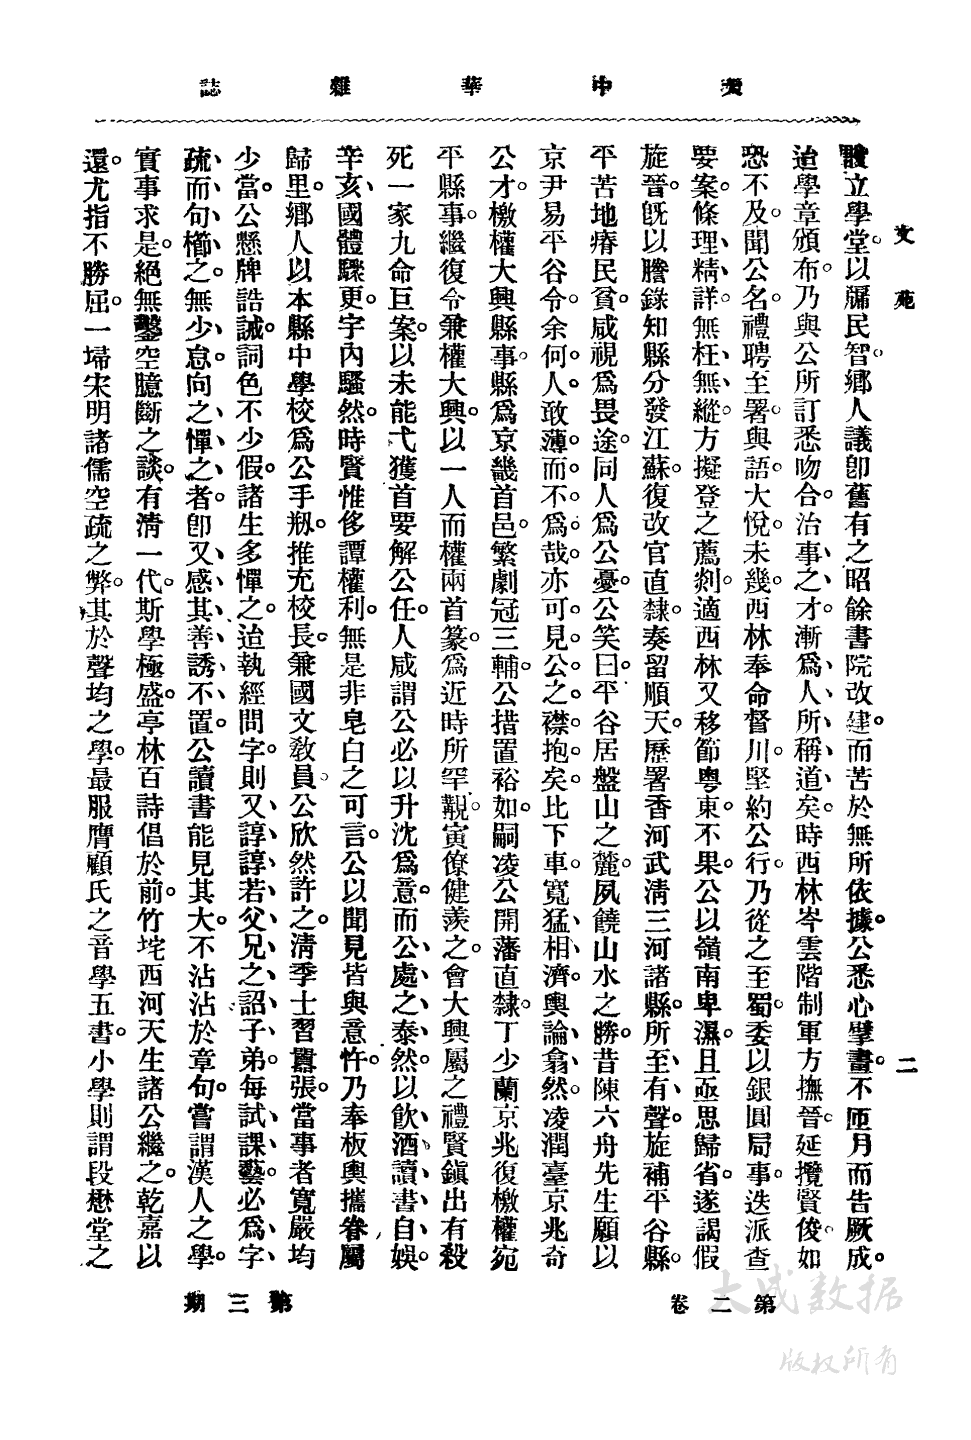 大中華雜誌
文苑
二
設立學堂。以牖民智。鄉人議卽舊有之昭餘書院改建。而苦於無所依據。公悉心擘畫。不匝月而告厥成。
迨學章頒布。乃與公所訂悉吻合。治事之才。漸爲人所稱道矣。時西林岑雲階制軍方撫晉。延攬賢俊。如
恐不及。聞公名。禮聘至署。與語大悅。未幾。西林奉命督川。堅約公行。乃從之至蜀。委以銀圓局事。迭派查
要案。條理精詳。無枉無縱。方擬登之薦剡。適西林又移節粵東。不果。公以嶺南卑濕。且亟思歸省。遂謁假
旋晉。旣以謄錄知縣分發江蘇。復改官直隸。奏留順天。歷署香河武淸三河諸縣。所至有聲。旋補平谷縣。
平苦地瘠民貧。咸視爲畏途。同人爲公憂。公笑曰。平谷居盤山之麓。夙饒山水之勝。昔陳六舟先生願以
京尹易平谷令。余何人。敢薄而不爲哉。亦可見公之襟抱矣。比下車。寬猛相濟。輿論翕然。凌潤臺京兆奇
公才。檄權大興縣事。縣爲京畿首邑。繁劇冠三輔。公措置裕如。嗣凌公開藩直隸。丁少蘭京兆復檄權宛
平縣事。繼復令兼權大興。以一人而權兩首篆。爲近時所罕覯。寅僚健羨之。會大興屬之禮賢鎭出有殺
死一家九命巨案。以未能弋獲首要解公任。人咸謂公必以升沈爲意。而公處之泰然。以飲酒讀書自娛。
辛亥國體驟更。宇內騷然。時賢惟侈譚權利。無是非皂白之可言。公以聞見皆與意忤。乃奉板輿攜眷屬
歸里。鄉人以本縣中學校爲公手剏。推充校長。兼國文敎員。公欣然許之。淸季士習囂張。當事者寬嚴均
少當。公懸牌誥誡。詞色不少假。諸生多憚之。迨執經問字。則又諄諄若父兄之詔子弟。每試課藝。必爲字
疏而句櫛之。無少怠。向之憚之者。卽又感其善誘不置。公讀書能見其大。不沾沾於章句。嘗謂漢人之學。
實事求是。絕無鑿空臆斷之談。有淸一代。斯學極盛。亭林百詩倡於前。竹垞西河天生諸公繼之。乾嘉以
還。尤指不勝屈。一埽宋明諸儒空疏之弊。其於聲均之學。最服膺顧氏之音學五書。小學則謂段懋堂之
第二卷
第三期
大成数据
版权所有